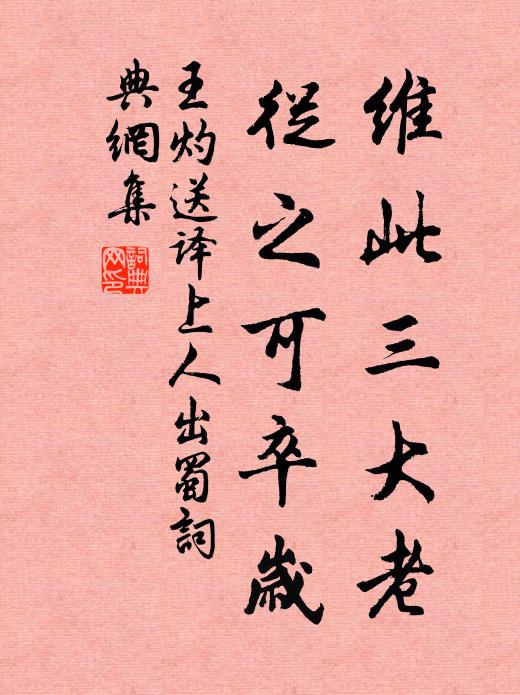 維此三大老
從之可卒歲
王灼送译上人出蜀詞
典網集
詞典網印